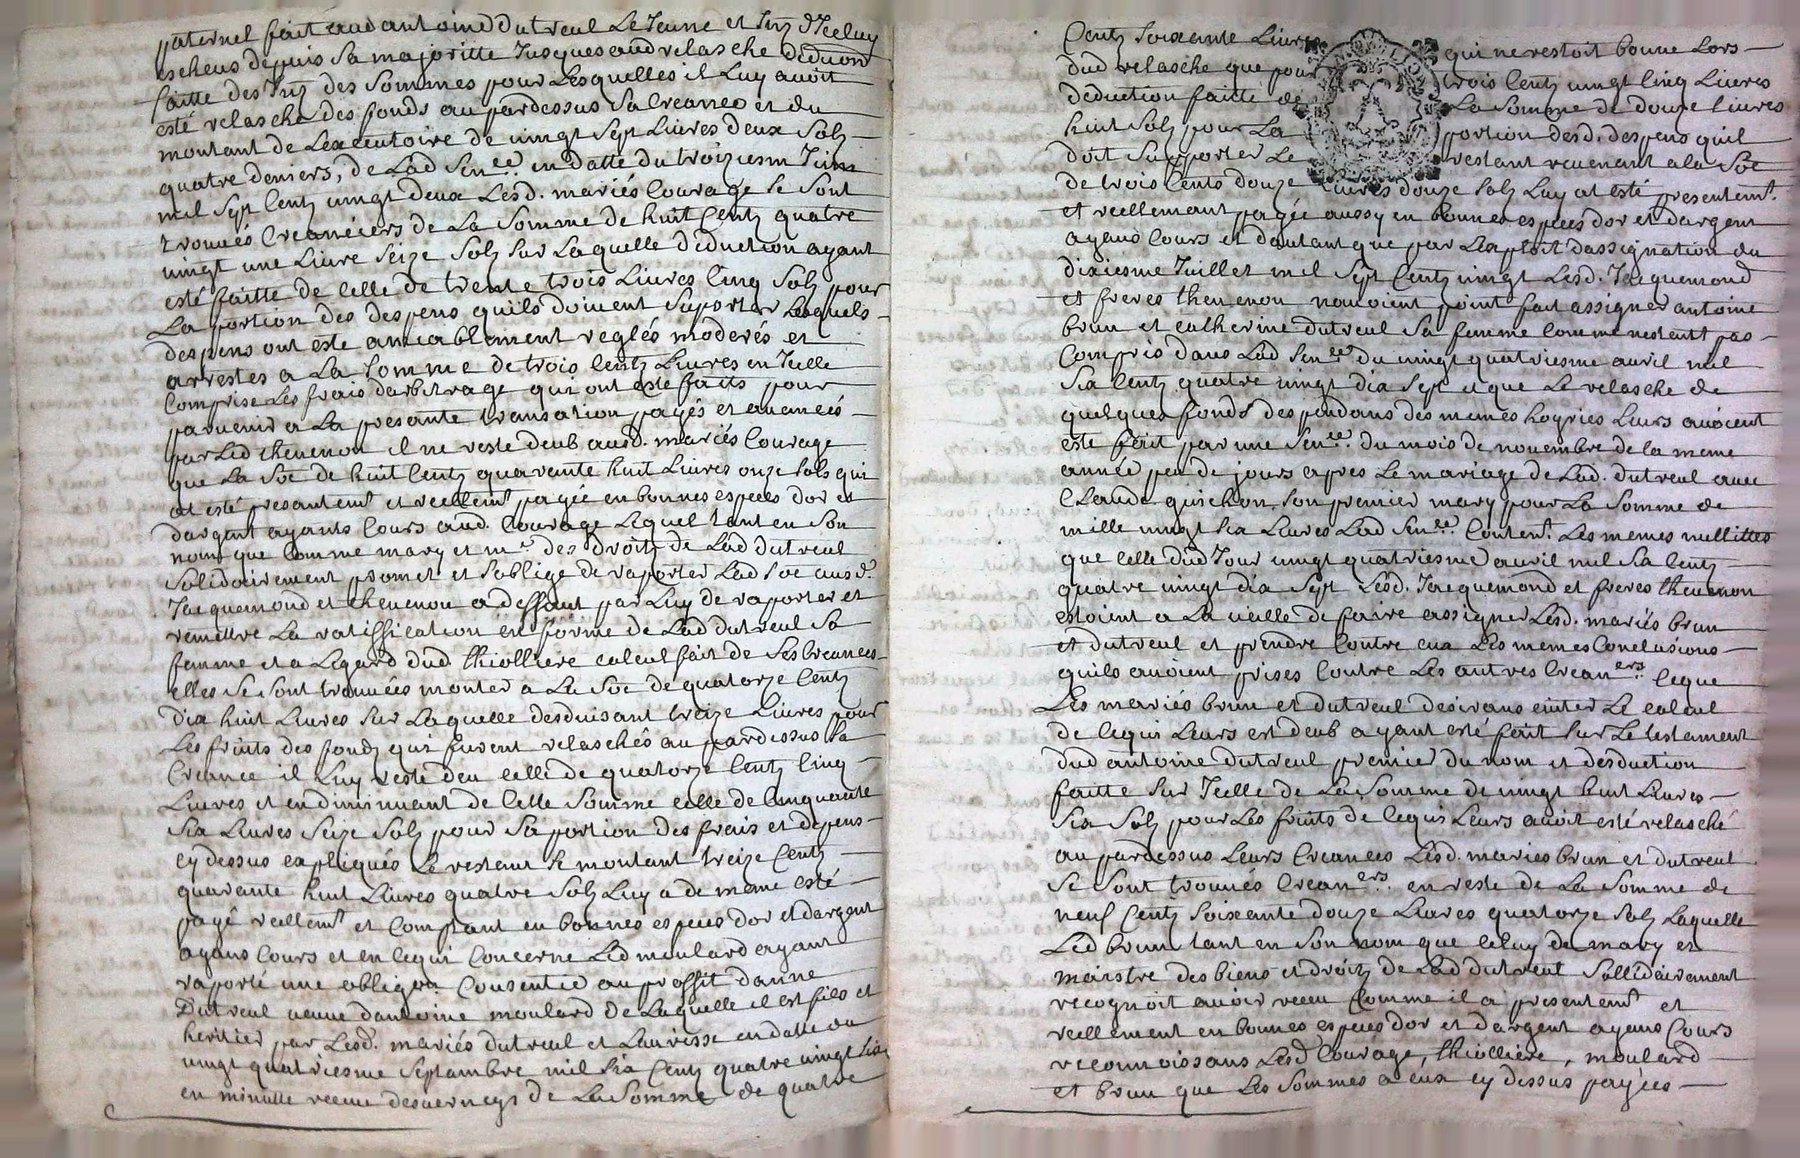 paternel fait aud antoine Dutreul Le Jeune et Intz d'Iceluy
escheus depuis Sa majoritte Jusques aud relasche deduon
faitte des Intz des Sommes pour Lesquelles il Luy avoit
esté relasché des fonds au pardessus Sa Creance et du
montant de Lexecutoire de vingt Sept Livres deux Solz
quatre deniers, de Lad Sence en datte du troiziesme Juin
mil Sept Centz vingt deux Lesd. mariés Couvage Se Sont
trouvés Creanciers de La Somme de huit Centz quatre
vingt une Livre Seize Solz Sur Laquelle deduction ayant
esté faitte de Celle de trente trois Livres Cinq Solz pour
La portion des despens quils doivent Suporter Lesquels
despens ont este amiablement reglés moderés et
arrestes a La Somme de trois Centz Livres en Icelle
Comprise Les frais darbitrage qui ont esté faits pour
parvenir a La presante transation payés et avancés
par Led thevenon il ne reste deub ausd. mariés Couvage
que La Soe de huit Centz quarante huit Livres onze Sols qui
at esté presantemt et reellemt payée en bonnes especes dor et
dargent ayants Cours aud. Couvage Lequel tant en Son
nom que Comme mary et me des droitz de Lad Dutreul
Solidairement promet et Soblige de raporter Lad Soe ausd.
Jacquemond et thevenon a deffaut par Luy de raporter et
remettre La ratiffication en forme de Lad dutreul Sa
femme et a Legard dud thiolliere calcul fait de Ses Creances
elles Se Sont trouvées monter a La Soe de quatorze Centz
dix huit Livres Sur Laquelle desduisant treize Livres pour
Les fruits des fondz qui furent relaschés au pardessus Sa
Creance il Luy reste deu celle de quatorze Centz Cinq
Livres et en diminuant de Cette Somme celle de Cinquante
Six Livres Seize Solz pour Sa portion des frais et depens
cy dessus expliqués Le restant Se montant treize Centz
quarante huit Livres quatre Solz Luy a de meme esté
payé reellemt et Comptant en bonnes especes dor et dargent
ayans Cours et en Cequi Concerne Led moulard ayant
raporté une obligon Consentie au proffit danne
Dutreul veuve dantoine moulard de Laquelle il est fils et
heritier par Lesd. mariés dutreul et Lauvisse en datte du
vingt quatriesme Septambre mil Six Centz quatre vingt Six
en minutte receue desverneys de La Somme de quatre
Centz Soixante Livres qui ne restoit bonne Lors
dud relasche que pour trois Centz vingt Cinq Livres
deduction faitte de La Somme de douze Livres
huit Solz pour La portion desd. despens quil
doit Supporter Le restant revenant a La Soe
de trois Cents douze Livres douze Solz Luy at esté presentemt
et reellemant payée aussy en bonnes especes dor et dargent
ayans Cours et dautant que par Lexploit dassignation du
dixiesme Juillet mil Sept Centz vingt Lesd. Jacquemond
et freres thevenon navoient point fait assigner antoine
brun et catherine dutreul Sa femme Comme nestant pas
Compris dans Lad Sence du vingt quatriesme avril mil
Six Centz quatre vingt dix Sept et que Le relasche de
quelques fonds despendans des memes hoyries Leurs avoient
este fait par une Sence du mois de novembre de la meme
année peu de jours apres Le mariage de Lad. dutreul avec
Claude guichon Son premier mary pour La Somme de
mille vingt Six Livres Lad Sence Content Les memes nullittes
que Celle dud Jour vingt quatriesme avril mil Six Centz
quatre vingt dix Sept Lesd. Jacquemond et freres thevenon
estoient a La vielle de faire assigner Lesd. mariés brun
et dutreul et prendre Contre eux Les memes Conclusions
quils avoient prises Contre Les autres Creaners Ceque
Les mariés brun et dutreul desirans eviter Le calcul
de Cequi Leurs est deub ayant esté fait Sur Le testament
dud antoine dutreul premier du nom et desduction
faitte Sur Icelle de La Somme de vingt huit Livres
Six Solz pour Les fruits de Cequi Leurs avoit esté relasché
au pardessus Leurs Creances Lesd. mariés brun et dutreul
Se Sont trouvés Creaners en reste de La Somme de
neuf Centz Soixante douze Livres quatorze Solz Laquelle
Led brun tant en Son nom que Celuy de mary et
maistre des biens et droitz de Lad dutreul Sollidairement
recognoit avoir receu Comme il a presentemt et
reellement en bonnes especes dor et dargent ayans Cours
reconnoissans Lesd Couvage, thiolliere, moulard
et brun que Les Sommes a eux cy dessus payées